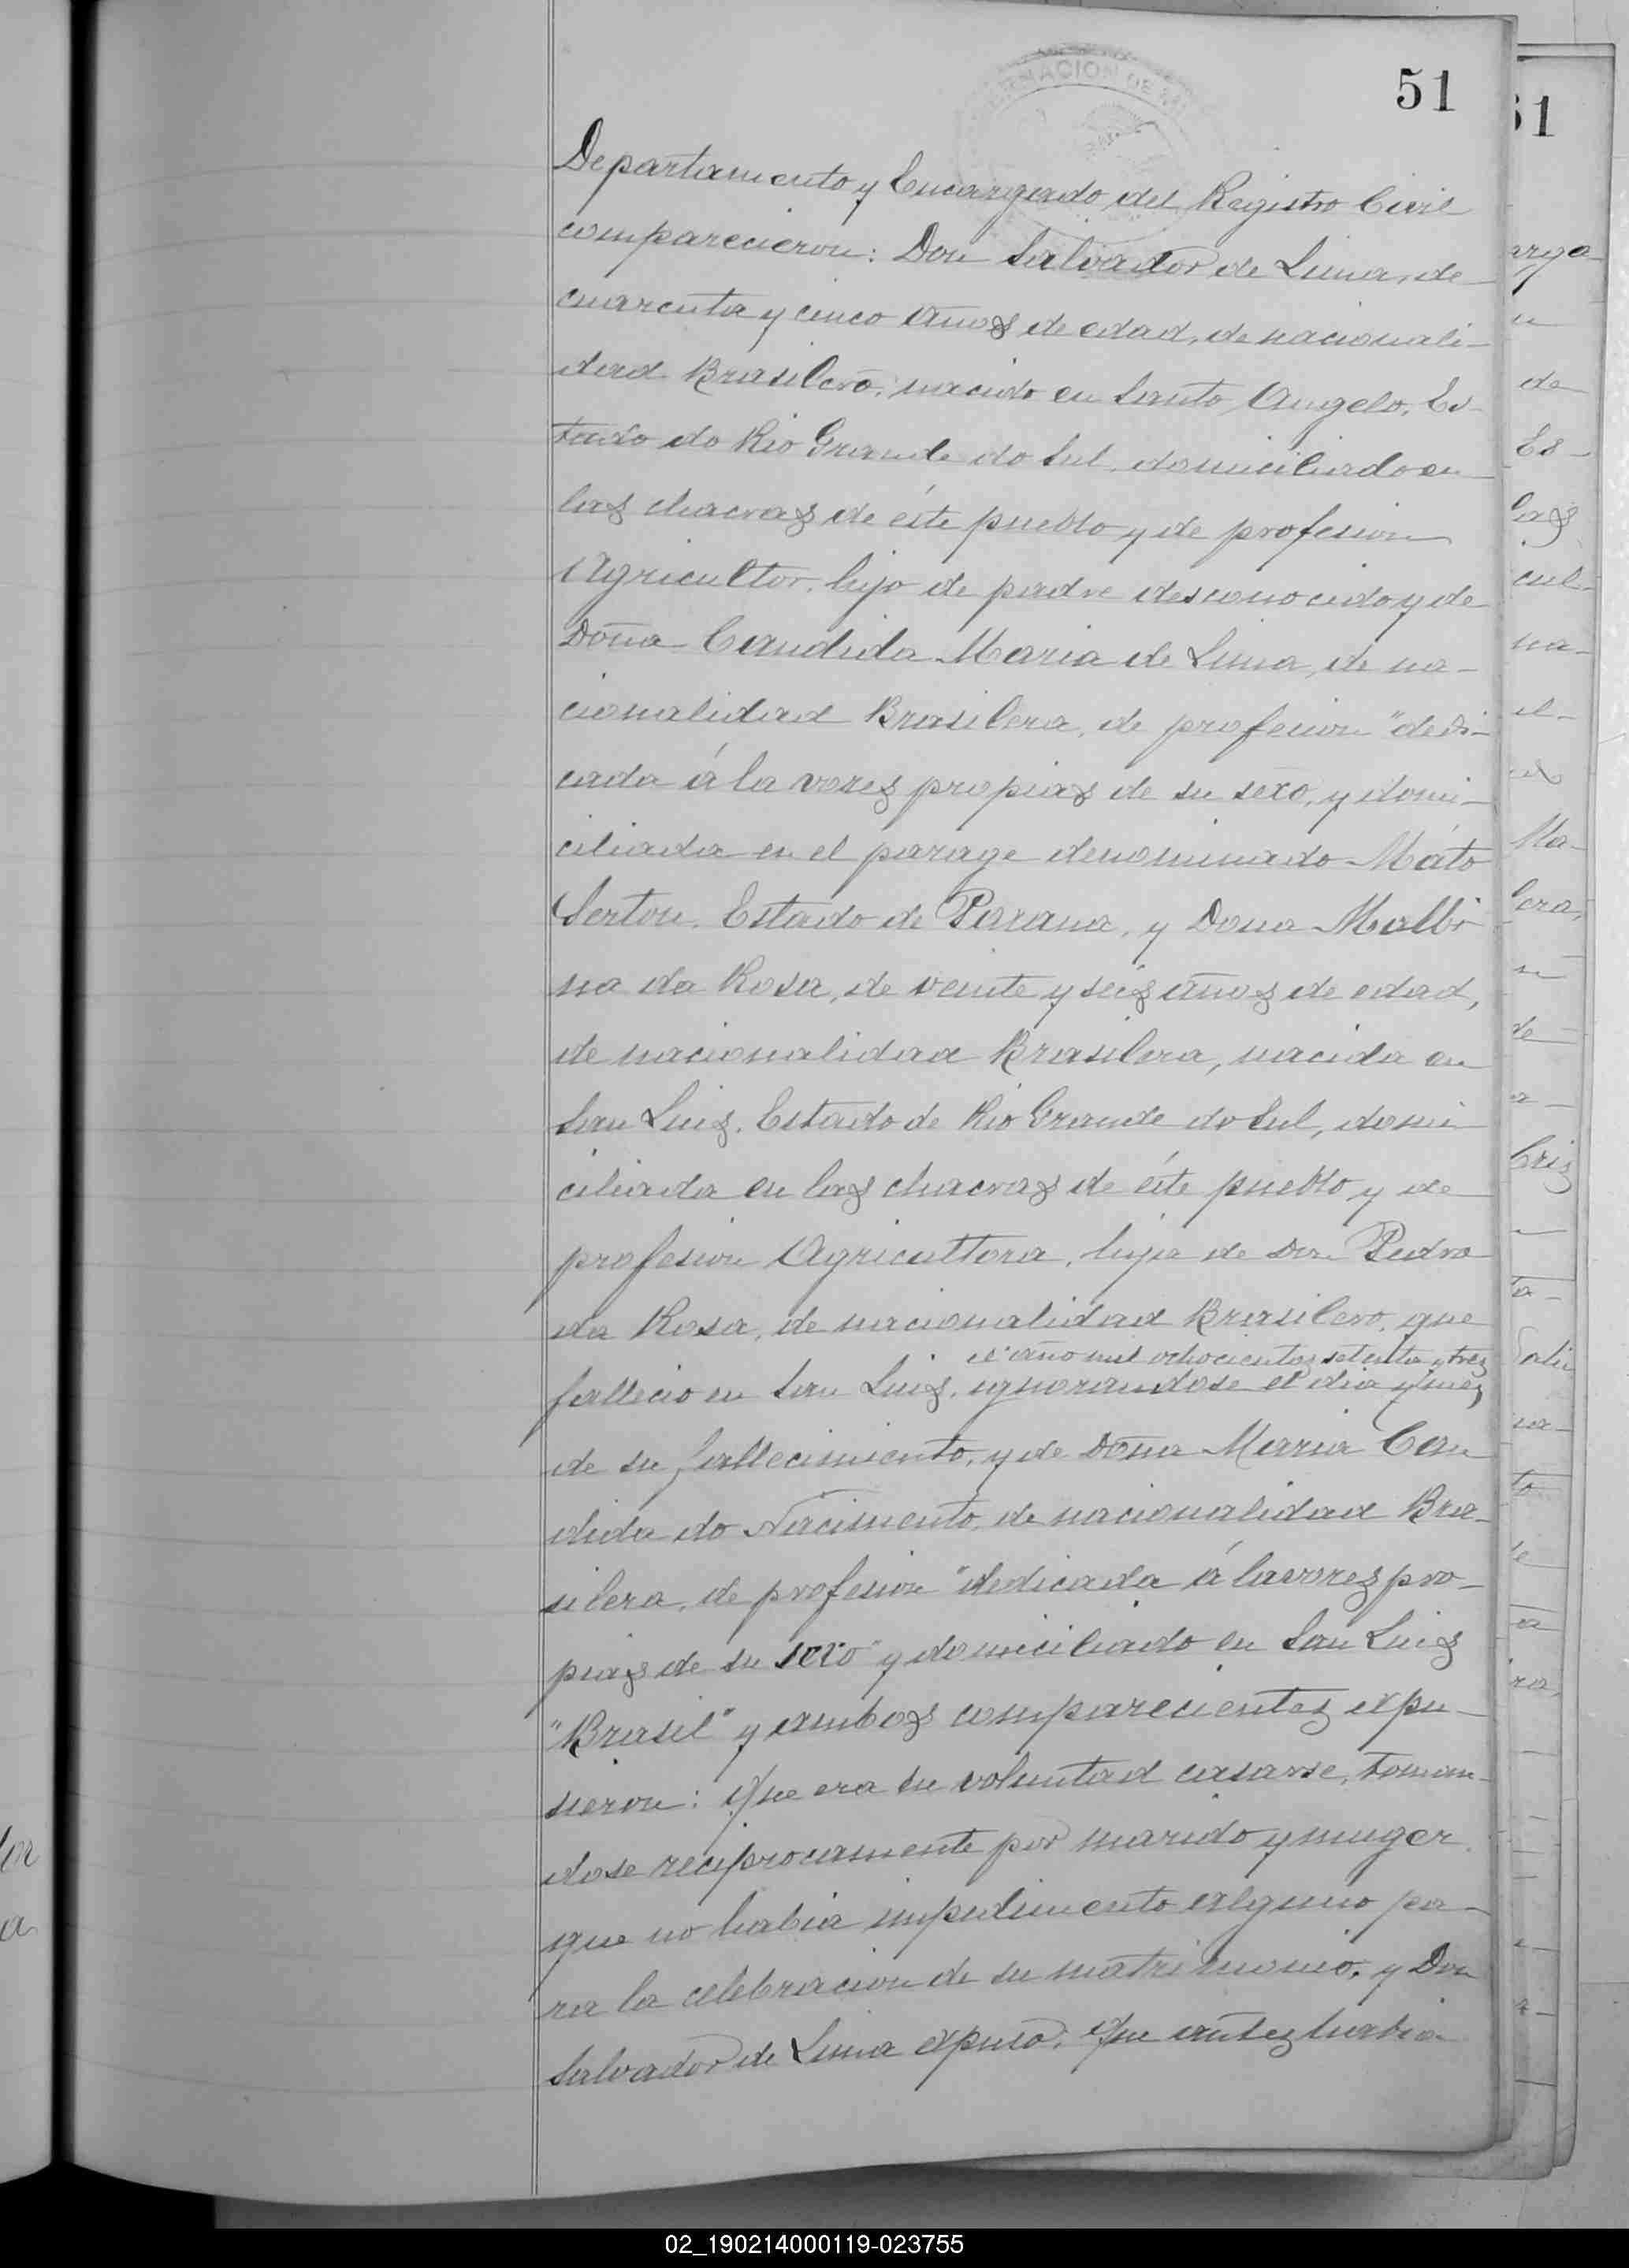 51
Departamento y Encargado del Registro Civil
comparecieron: Don Salvador de Lima, de
cuarenta y cinco años de edad, de nacionali-
dad Brasilero, nacido en Santo Angelo, Es-
tado do Rio Grande do Sul, domiciliado en
las chacras de éste pueblo y de profesion
Agricultor, hijo de padre desconocido y de
Doña Candida Maria de Lima, de na-
cionalidad Brasilera, de profesion "dedi-
cada á la vores propias de su sexo, y domi-
ciliada en el parage denominado Máto
Serton, Estado de Parana, y Dona Malbi
na da Rosa, de veinte y seis años de edad,
de nacionalidad Brasilera, nacida en
San Luis, Estado de Rio Grande do Sul, domi
ciliada en las chacras de éste pueblo y de
profesion Agricultora, hija de Don Pedro
da Rosa, de nacionalidad Brasilero, que
el año mil ochocientos setenta y tres
fallecio en San Luis, ignorandose el dia y mes,
de su fallecimiento, y de Doña Maria Can
dida do Nacimento, de nacionalidad Bra-
silera, de profesion "dedicada á lavores pro-
pias de su sexo" y domiciliado en San Luis
"Brasil" y ambos comparecientes expu-
sieron: Que era su voluntad casarse, toman-
dose reciprocamente por marido y muger
que no habia impedimento alguno pa-
ra la celebracion de su matrimonio. y Don
Salvador de Lima expuso: Que antes habia
51
arga-
de
Es-
las
cul-
na-
el-
Ma-
lera,
de
ta-
na-
to
02_190214000119-023755